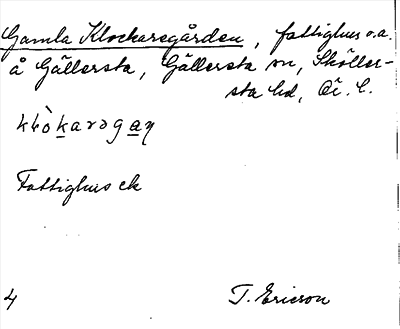 Gamla Klockaregården, fattighus o.a.
å Gällersta, Gällersta sn, Sköller-
sta hd, Ör. l.
Fattighus ek
4
T. Ericson